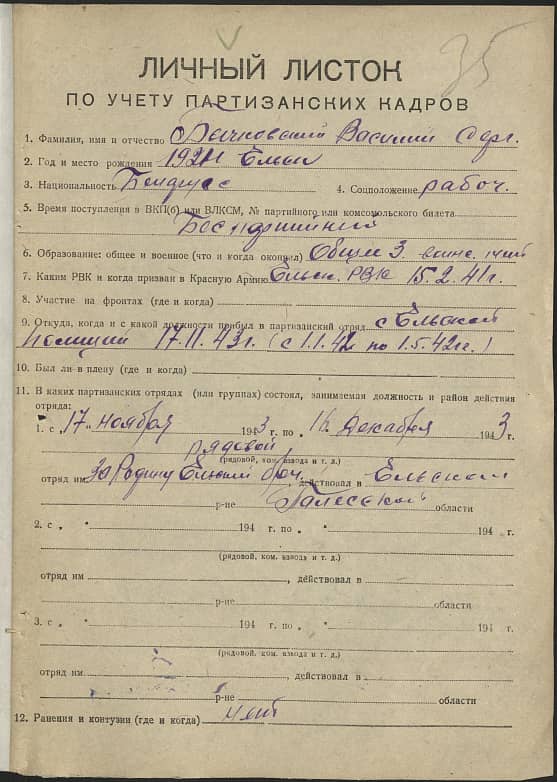 35
ЛИЧНЫЙ ЛИСТОК
ПО УЧЕТУ ПАРТИЗАНСКИХ КАДРОВ
1. Фамилия, имя и отчество Бычковский Василий Сер.
2. Год и место рождения 192 Ельск
3. Национальность Белорусс 4. Соцположение рабоч.
5. Время поступления в ВКП(б) или ВЛКСМ, № партийного или комсомольского билета
Беспартийный
6. Образование: общее и военное (что и когда окончил) Общее 3. воен. нет
7. Каким РВК и когда призван в Красную Армию Ельск. РВК 15.2.41г.
8. Участие на фронтах (где и когда)
9. Откуда, когда и с какой должности прибыл в партизанский отряд с Ельской
Полиции 17.11.43г. (с 1.1.42 по 1.5.42г.)
10. Был ли в плену (где и когда)
11. В каких партизанских отрядах (или группах) состоял, занимаемая должность и район действия
отряда:
1. с „17" ноября 1943 г. по „ Декабря 1943 г.
рядовой
(рядовой, ком. взвода и т. д.)
отряд им За Родину Ельский бр., действовал в Ельском
р-не Полесской области
2. с „ " 194 г. по „ " 194 г.
(рядовой, ком. взвода и т. д.)
отряд им , действовал в
р-не области
3. с „ " 194 г. по „ " 194 г.
(рядовой, ком. взвода и т. д.)
отряд им , действовал в
р-не области
12. Ранения и контузии (где и когда) нет